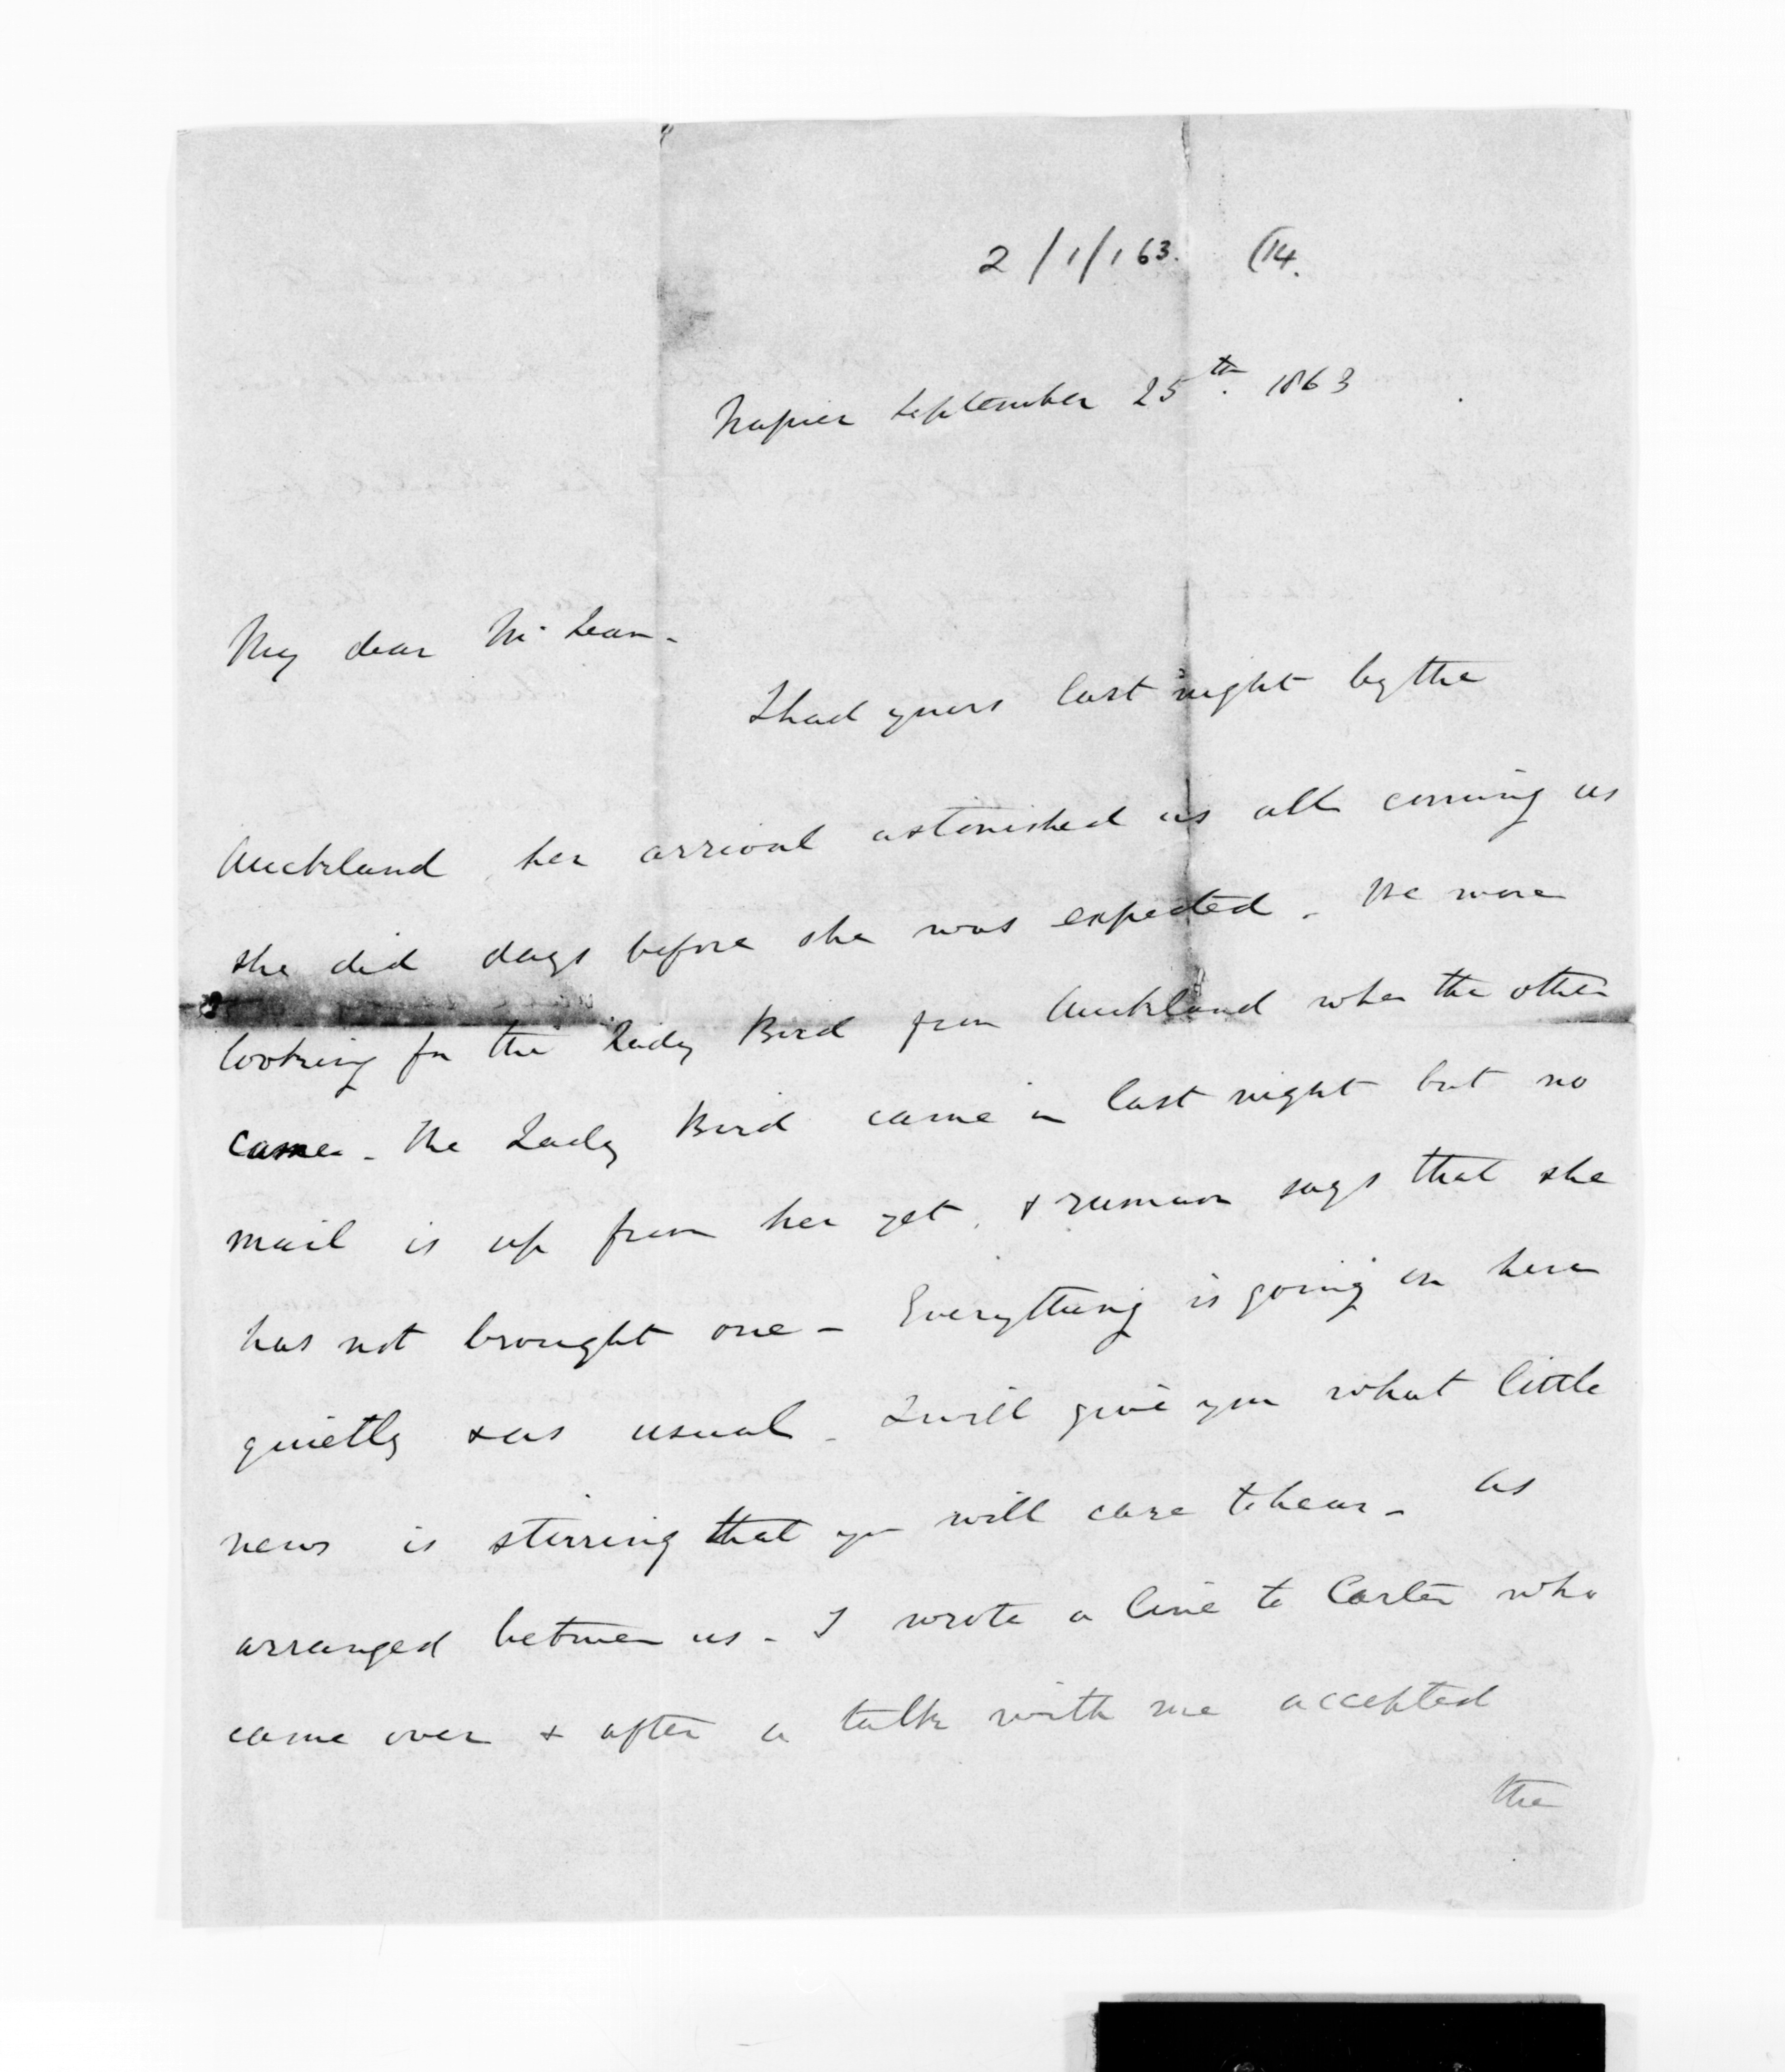 2/1/163. (14.
Napier September 25th. 1863
My dear McLean -
I had yours last night by the
Auckland, her arrival astonished us all coming as
she did days before she was expected. We were
looking for the Lady Bird from Auckland when the other
came. The Lady Bird came in last night but no
mail is up from her yet, & rumour says that she
has not brought one - Everything is going on here
quietly & as usual. I will give you what little
news is stirring that you will care to hear - As
arranged between us - I wrote a line to Carter who
came over & after a talk with me accepted
the